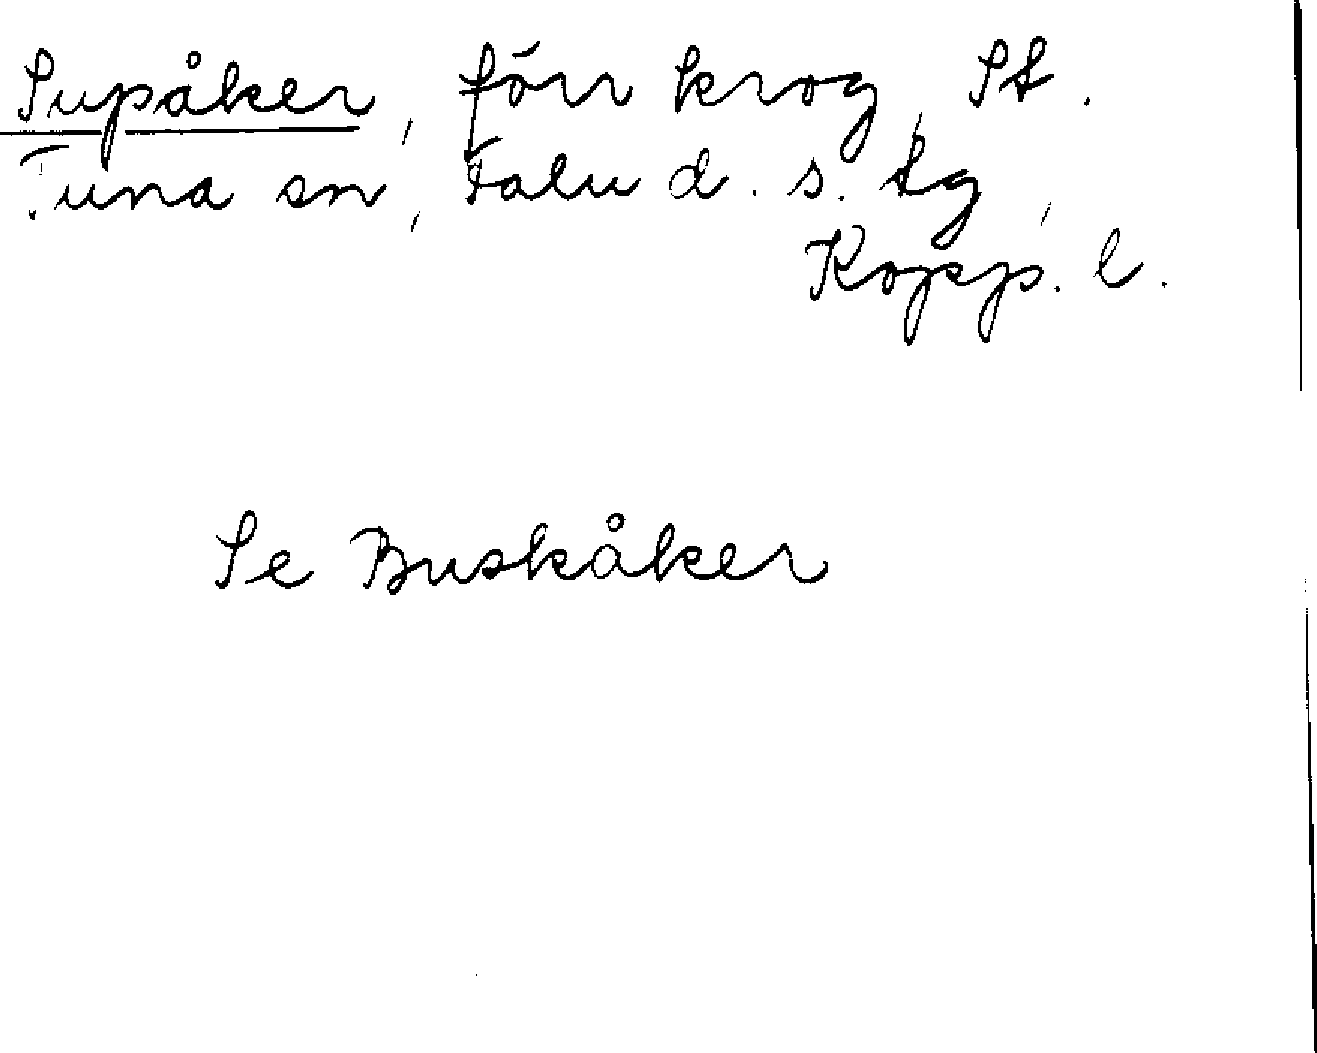 Supåker, förr krog, St.
Tuna sn, Falu d. s. tg,
Kopp. l.
Se Buskåker